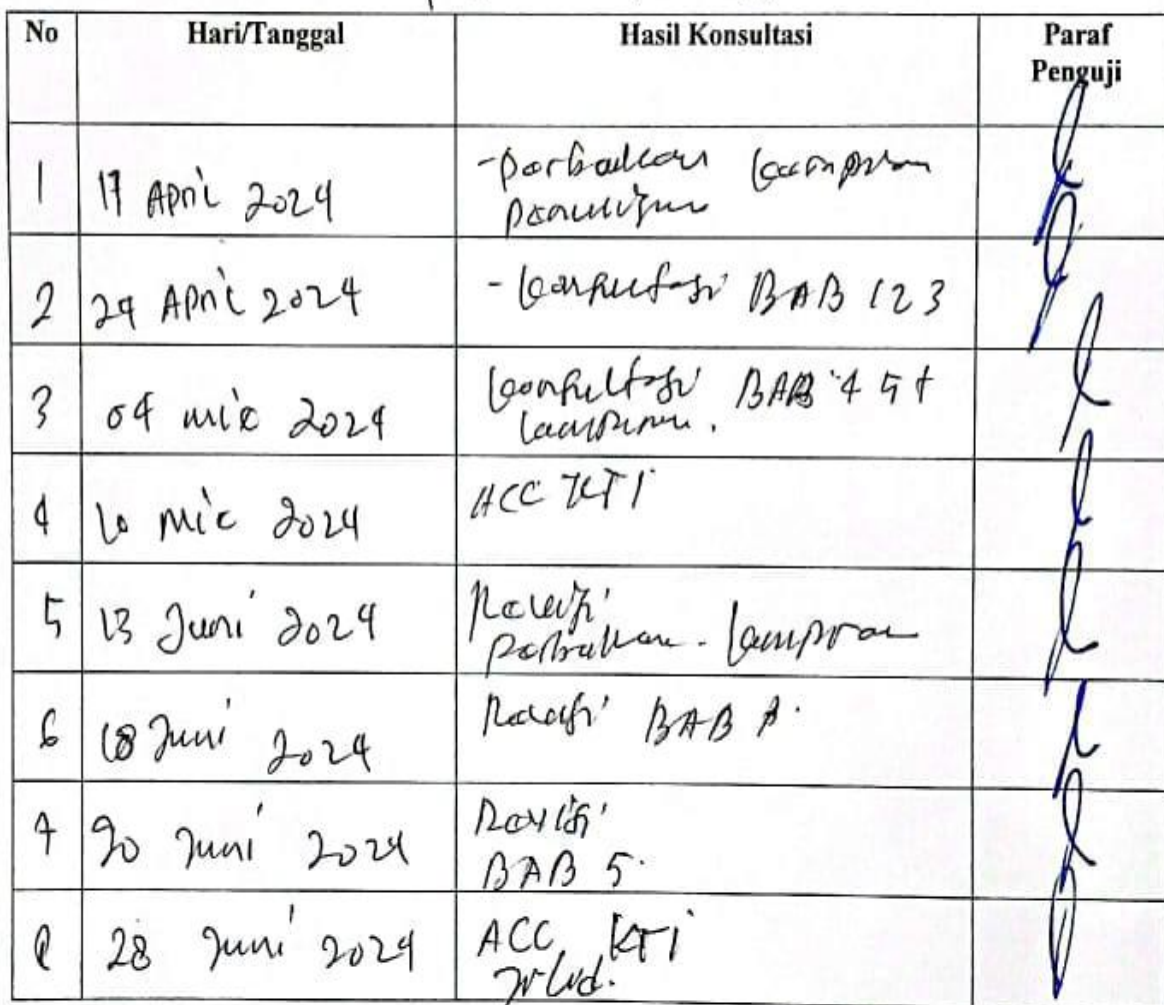 No Hari/Tanggal Hasil Konsultasi Paraf
Penguji
1 17 April 2024 - perbaikan lampiran
2 24 April 2024 - konsultasi BAB 123
3 04 mie 2024 konsultasi BAB 4 5 +
lampiran.
4 10 Mie 2024 ACC KTI
5 13 Juni 2024 Revisi
perbaikan lampiran
6 18 Juni 2024 Revisi BAB
7 20 Juni 2024 Revisi
BAB 5.
8 28 Juni 2024 ACC KTI